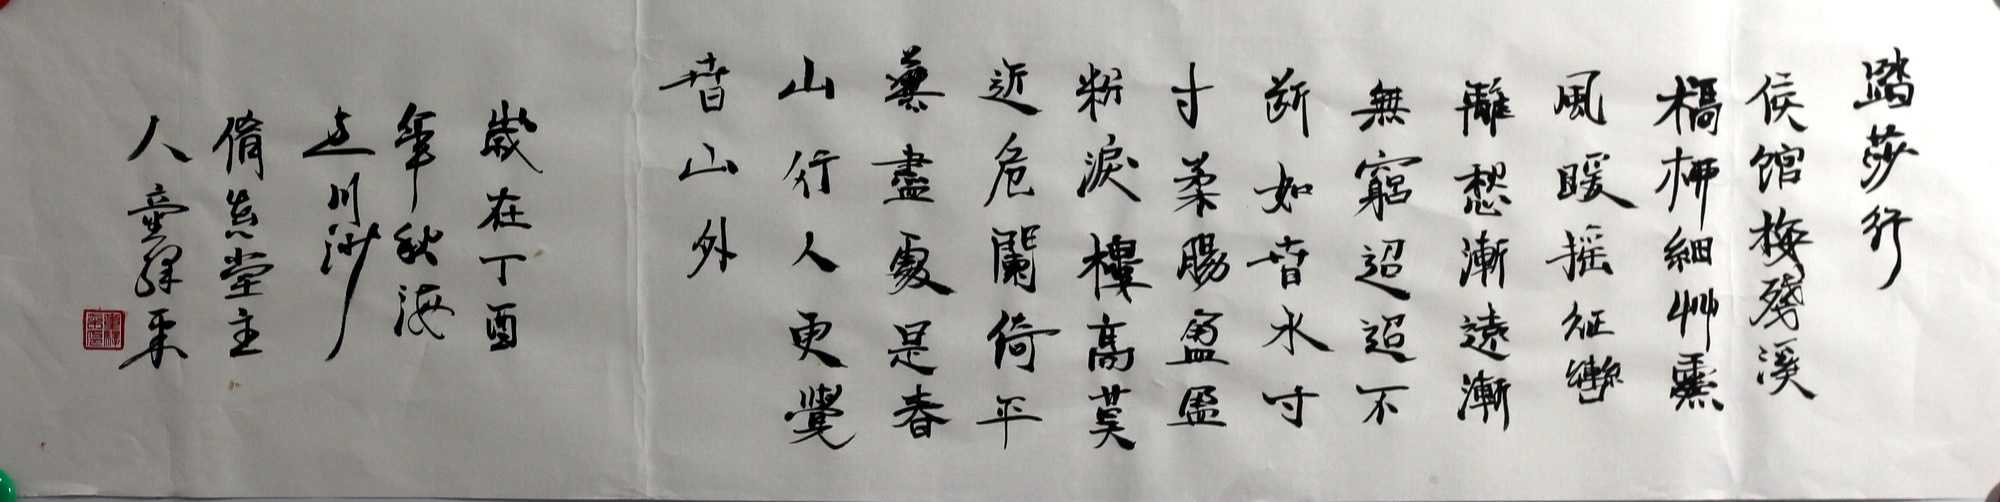 踏莎行
侯館梅殘溪
橋柳細艸熏
風暖摇征轡
離愁漸遠漸
無窮迢迢不
斷如旾水寸
寸柔腸盈盈
粉淚樓高莫
近危闌倚平
蕪盡處是春
山行人更覺
旾山外
歲在丁酉
年秋海
上川沙
堂主
人童